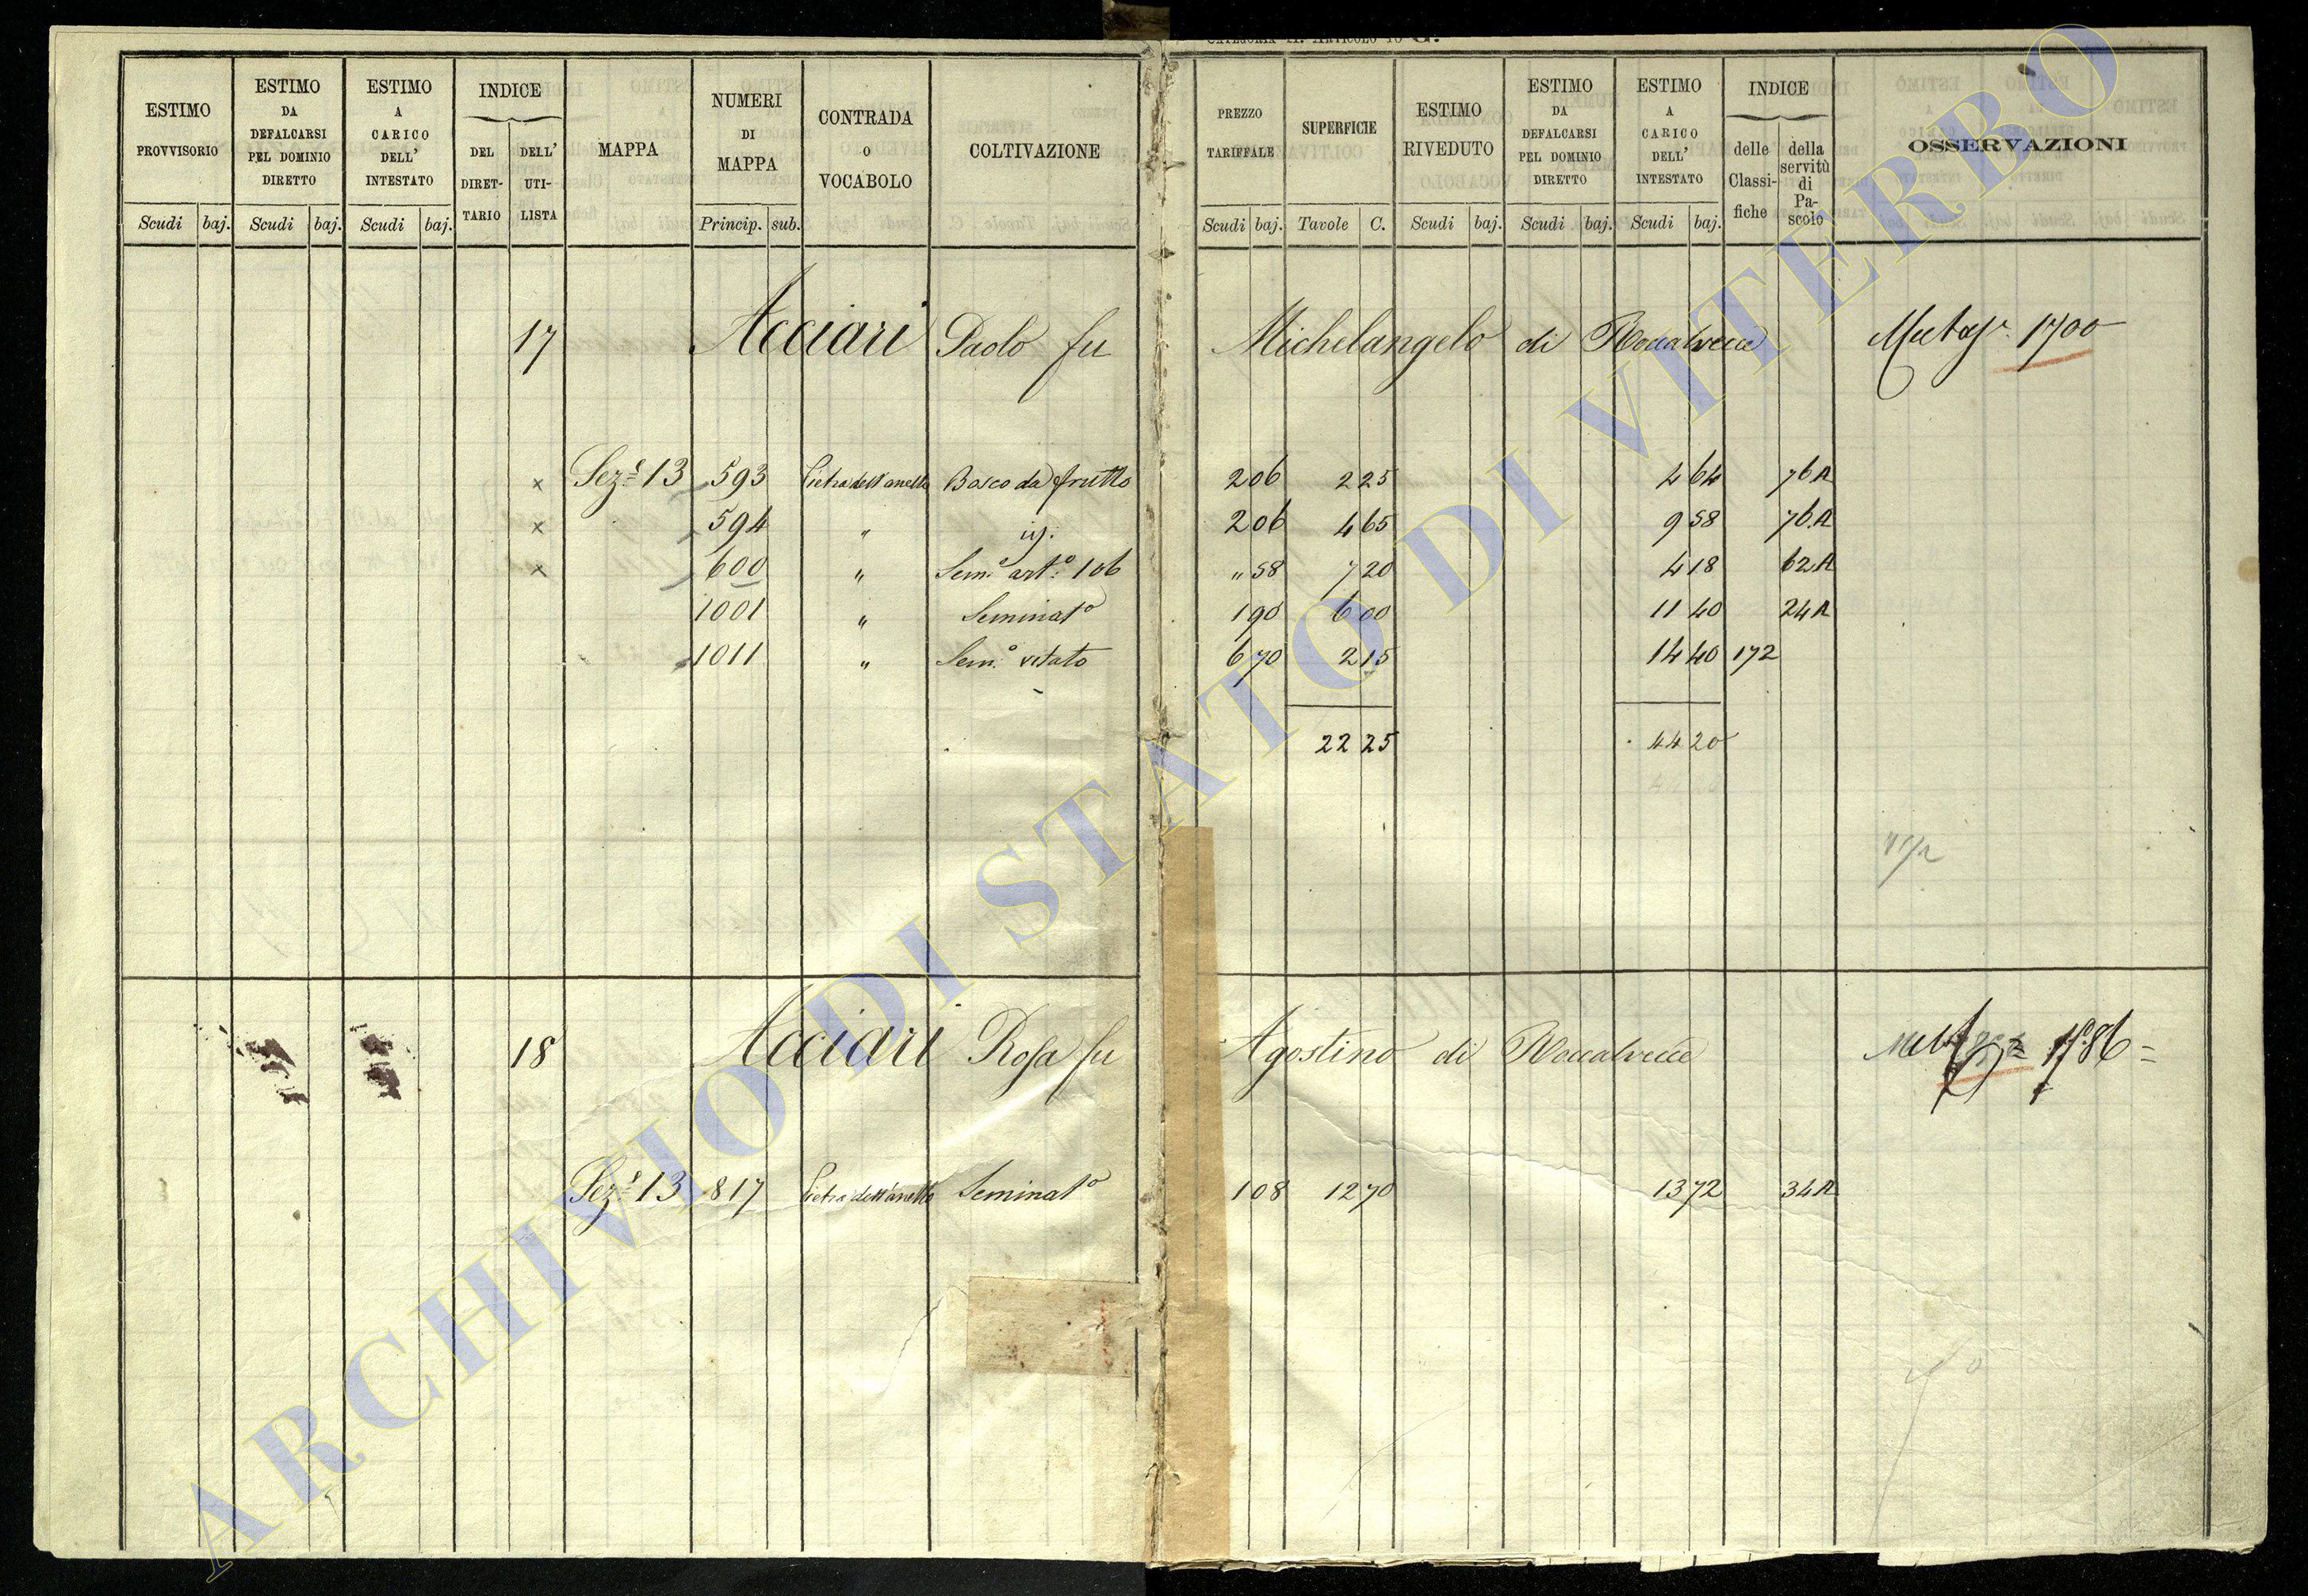 CATEGORIA II. ARTICOLO 10 G.
ESTIMO PROVVISORIO Scudi baj.
ESTIMO DA DEFALCARSI PEL DOMINIO DIRETTO Scudi baj.
ESTIMO A CARICO DELL' INTESTATO Scudi baj.
INDICE DEL DIRET-TARIO DELL' UTI-LISTA
MAPPA
NUMERI DI MAPPA Princip. sub.
CONTRADA O VOCABOLO
COLTIVAZIONE
PREZZO TARIFFALE Scudi baj.
SUPERFICIE Tavole C.
ESTIMO RIVEDUTO Scudi baj.
ESTIMO DA DEFALCARSI PEL DOMINIO DIRETTO Scudi baj.
ESTIMO A CARICO DELL' INTESTATO Scudi baj.
INDICE delle Classi-fiche della servitù di Pa-scolo
OSSERVAZIONI
17 Acciari Paolo fu Michelangelo di Roccalvecce 1700
x Sez.e 13 593 Pietra dell'anello Bosco da frutto 2 06 2 25 4 64 76 A
x 594 " id. 2 06 4 65 9 58 76 A
x 600 " Sem.o art.o 106 " 58 7 20 4 18 62 A
1001 " Seminat.o 1 90 6 00 11 40 24 A
1011 " Sem.o vitato 6 70 2 15 14 40 172
22 25 44 20
18 Acciari Rosa fu Agostino di Roccalvecce
Sez.e 13 817 Pietra dell'anello Seminat.o 1 08 12 70 13 72 34 A
ARCHIVIO DI STATO DI VITERBO